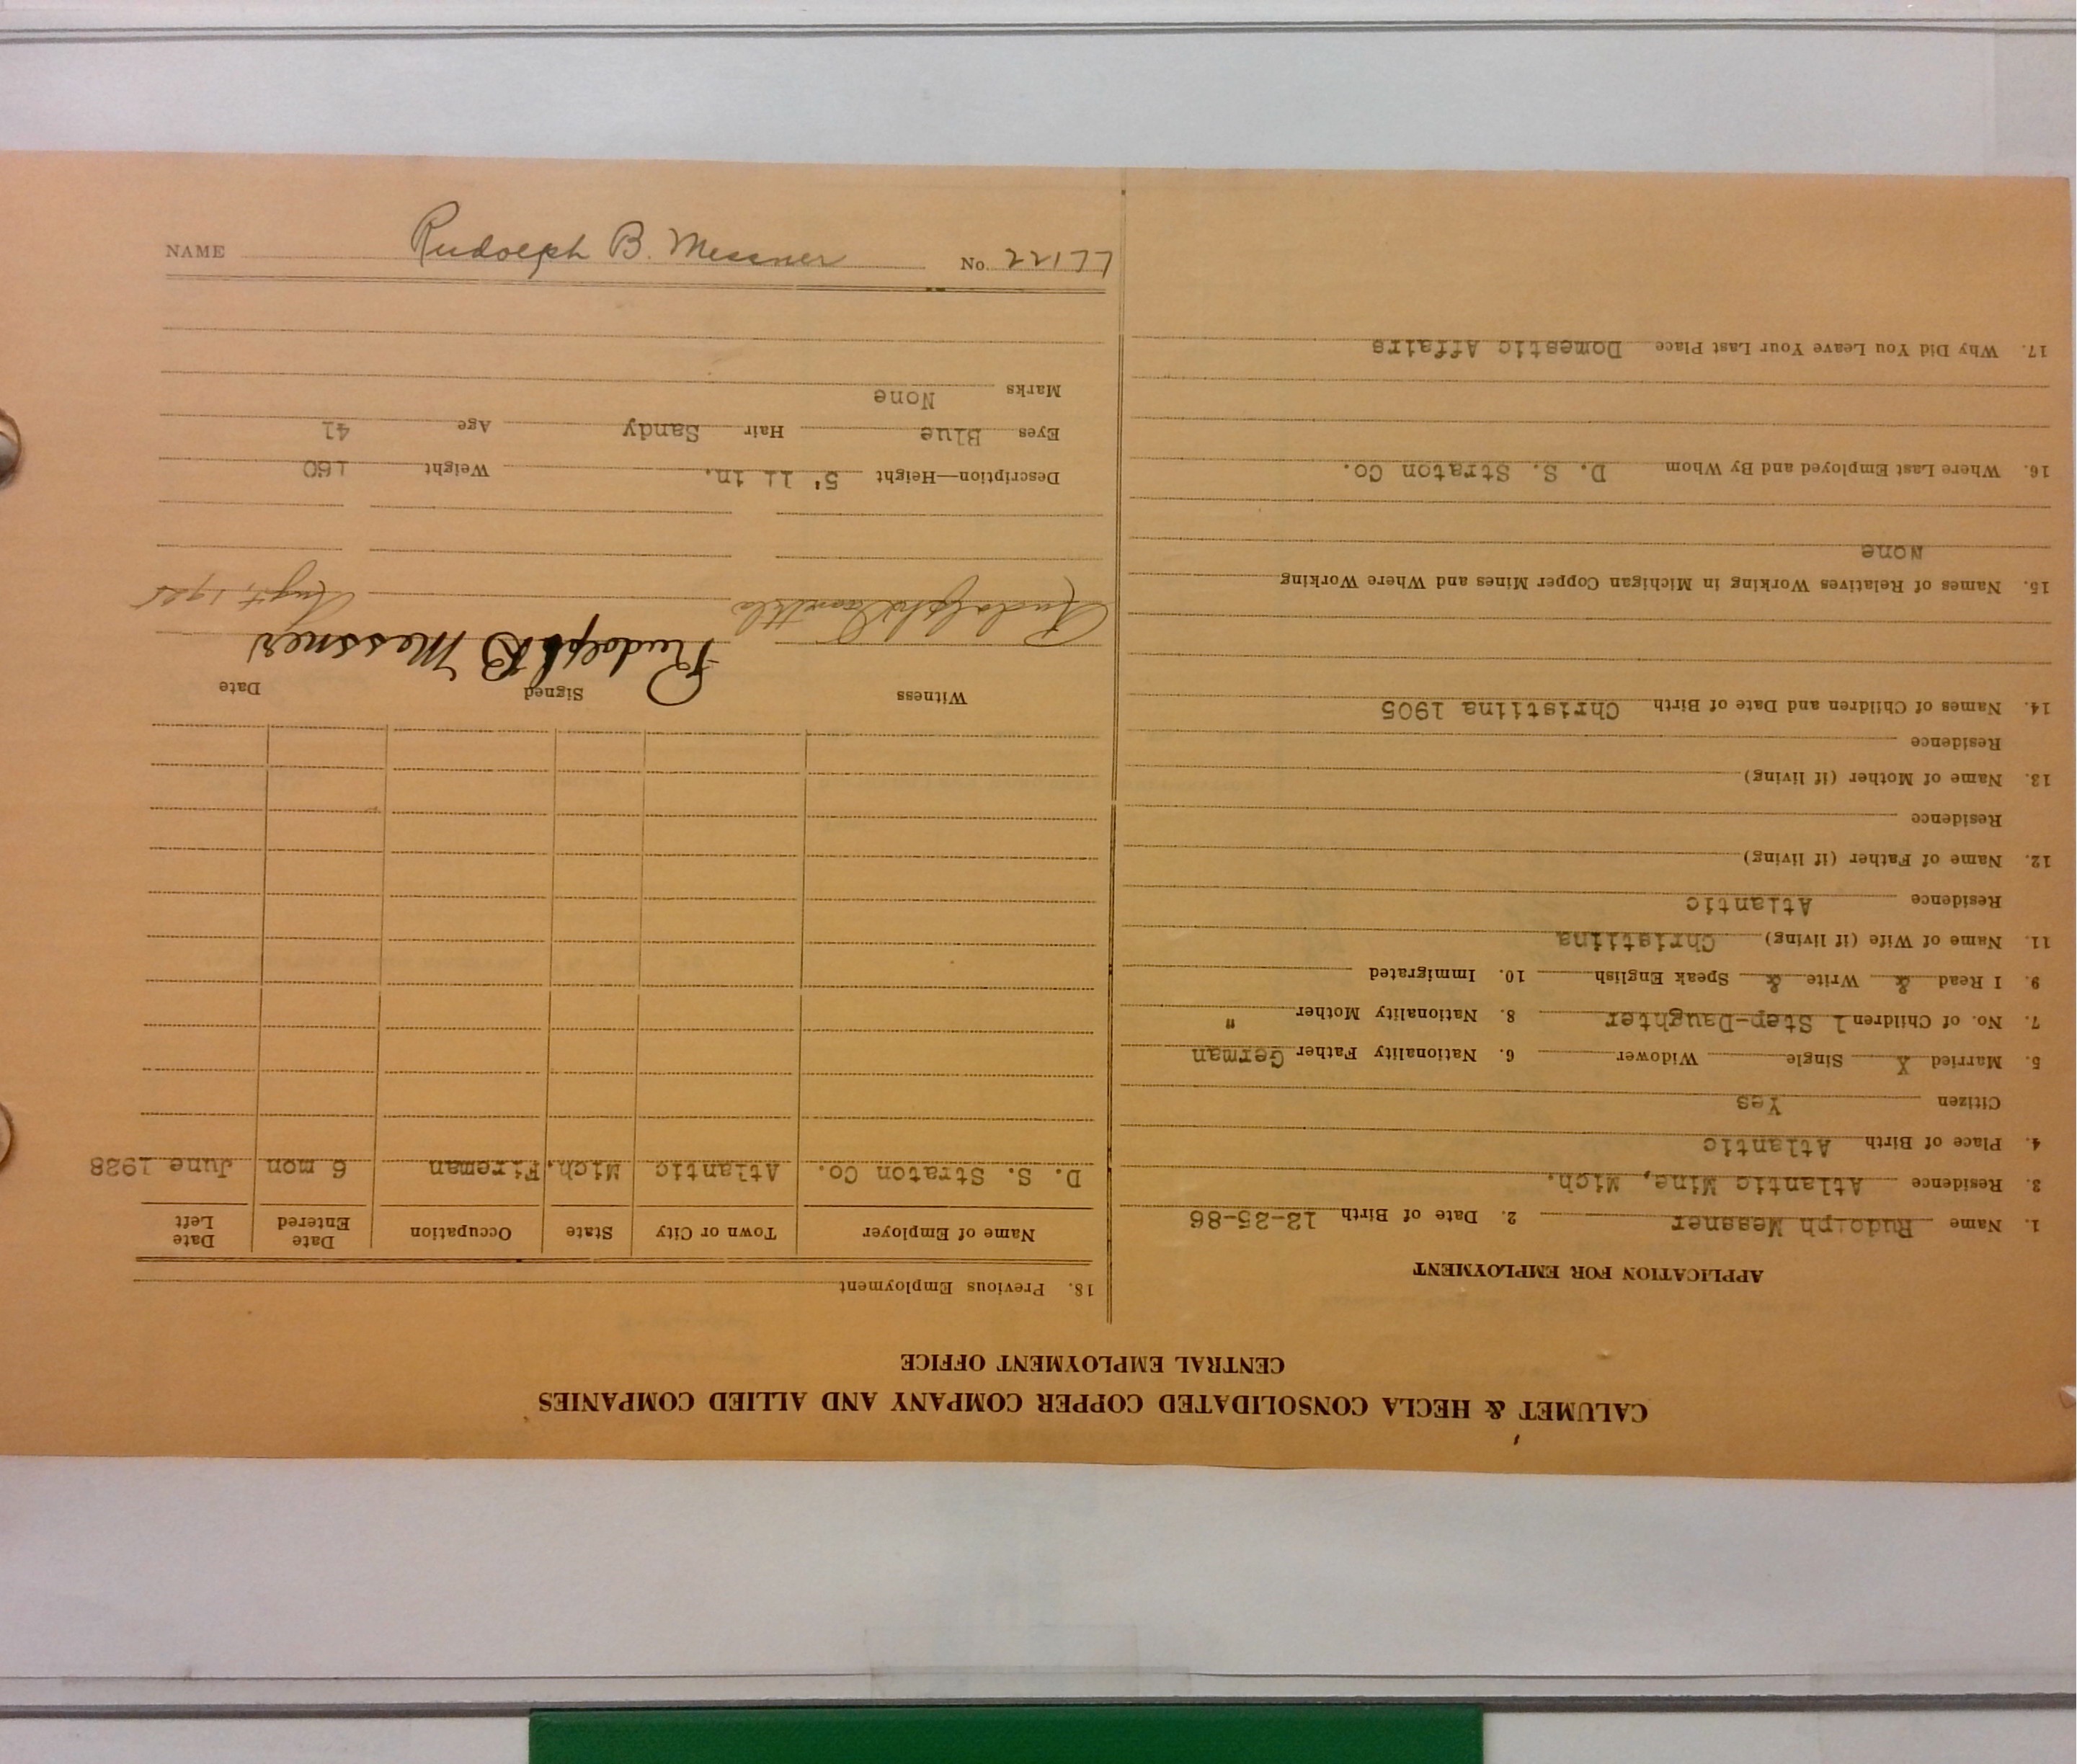 CALUMET & HECLA CONSOLIDATED COPPER COMPANY AND ALLIED COMPANIES
CENTRAL EMPLOYMENT OFFICE
APPLICATION FOR EMPLOYMENT
1. Name Rudolph Messner 2. Date of Birth 12-25-86
3. Residence Atlantic Mine, Mich.
4. Place of Birth Atlantic
Citizen Yes
5. Married X Single Widower 6. Nationality Father German
7. No. of Children 1 Step-Daughter 8. Nationality Mother "
9. I Read & Write & Speak English 10. Immigrated
11. Name of Wife (if living) Christiina
Residence Atlantic
12. Name of Father (if living)
Residence
13. Name of Mother (if living)
Residence
14. Names of Children and Date of Birth Christiina 1905
15. Names of Relatives Working in Michigan Copper Mines and Where Working
None
16. Where Last Employed and By Whom D. S. Straton Co.
17. Why Did You Leave Your Last Place Domestic Affairs
18. Previous Employment
Name of Employer Town or City State Occupation Date Entered Date Left
D. S. Straton Co. Atlantic Mich. Fireman 6 mon June 1928
Witness Signed Date
Rudolph B Messner
Description—Height 5' 11 in. Weight 160
Eyes Blue Hair Sandy Age 41
Marks None
NAME Rudolph B. Messner No. 22177